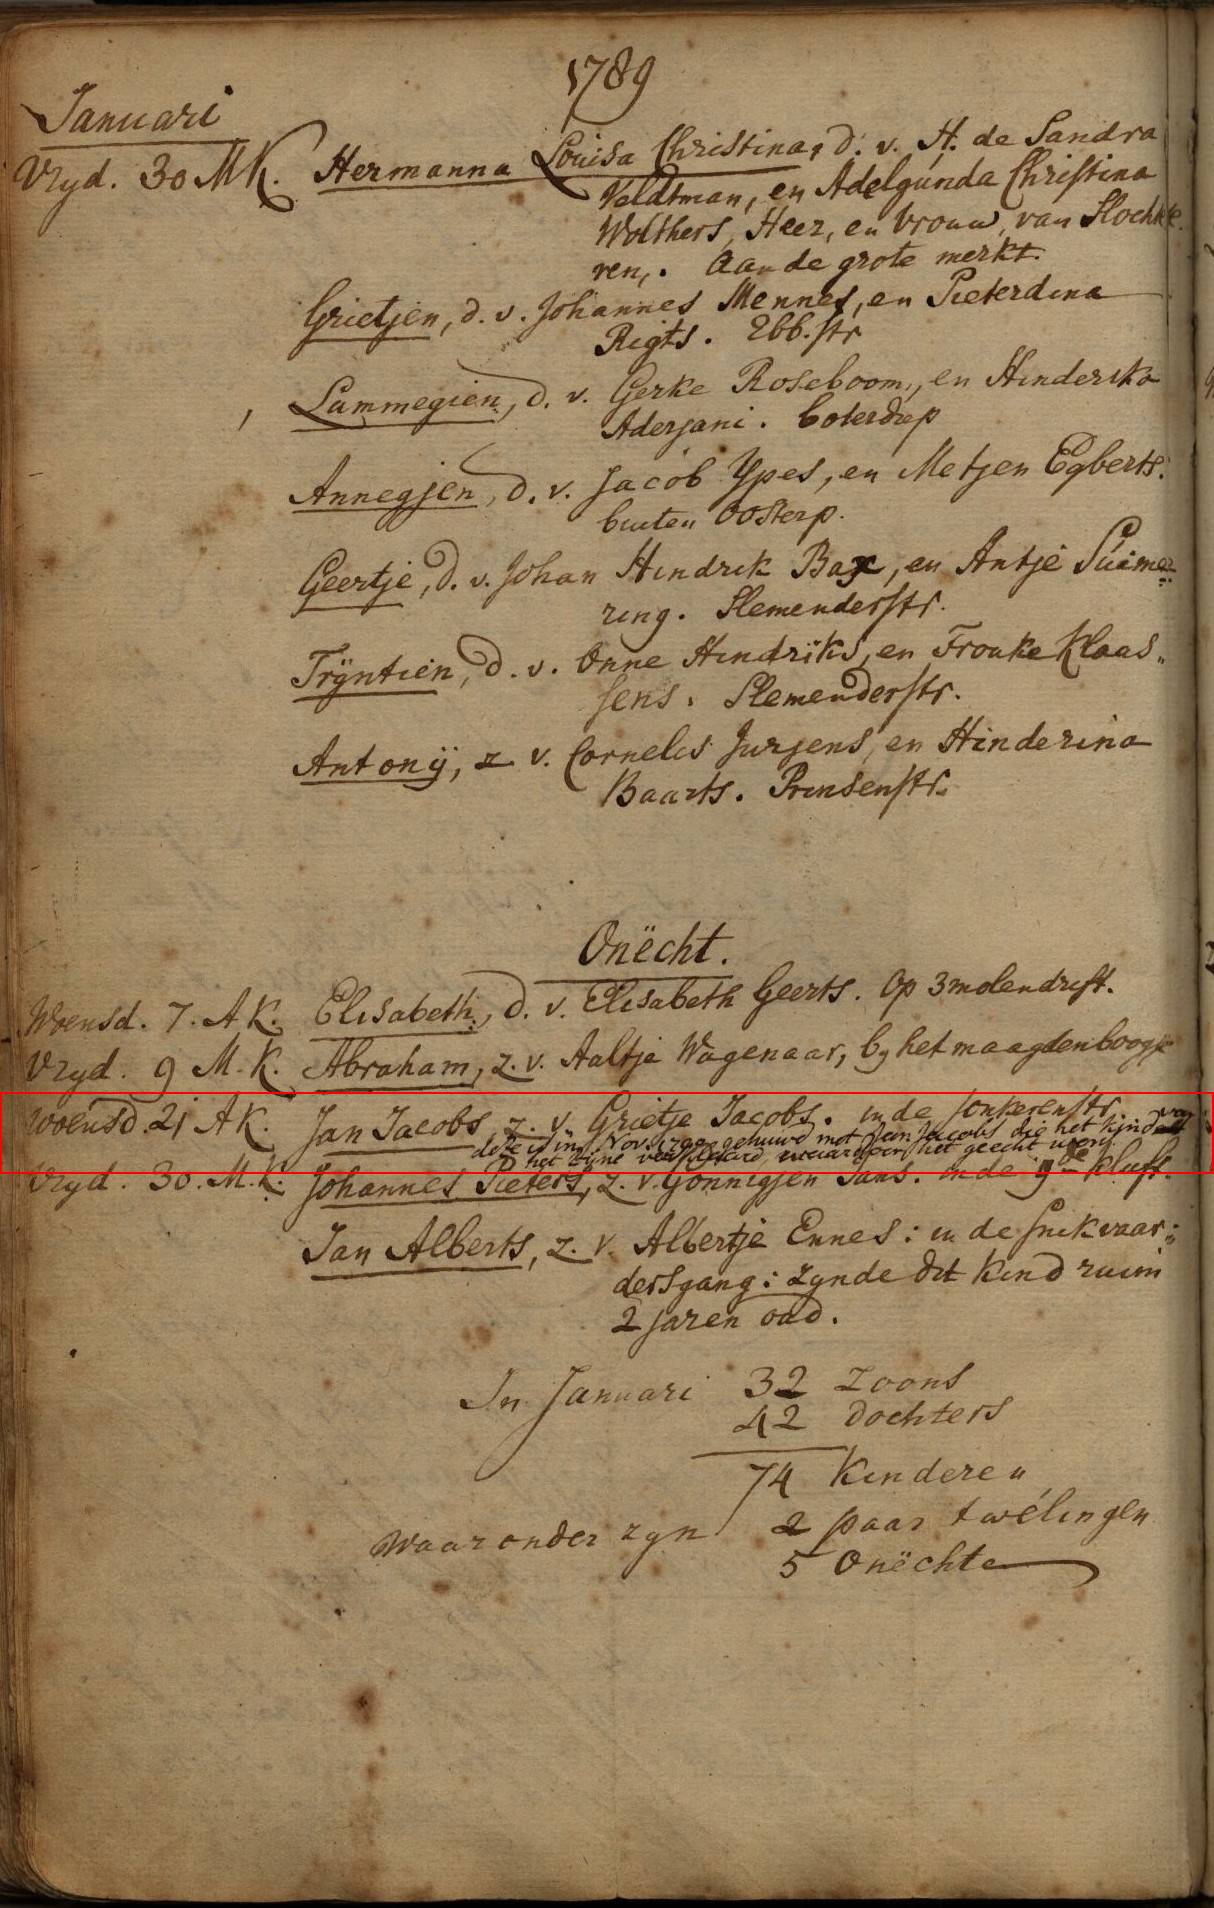 1789
Januari
Vryd. 30 M K. Hermanna Louisa Christina, d. v. H. de Sandra
Veldtman, en Adelgunda Christina
Wolthers, Heer, en Vrouw, van Slochte
ren,. Aan de grote merkt.
Grietjen, d. v. Johannes Mennes, en Pieterdina
Rigts. Ebb. str
Lammegien, d. v. Gerke Roseboom, en Hinderika
Aderjani. boterdiep
Annegjen, d. v. Jacob Ypes, en Metjen Egberts.
buiten Oosterp.
Geertje, d. v. Johan Hindrik Bax, en Antje Suimer
ring. Slemenderstr.
Trÿntien, d. v. Onne Hindriks, en Frouke Klaas„
sens. Slemenderstr.
Antonÿ, z v. Cornelis Jurjens, en Hinderina
Baarts. Prinsenstr.
Onëcht.
Woensd. 7. A K. Elisabeth, d. v. Elisabeth Geerts. Op 3molendrift.
Vryd. 9 M. K. Abraham, z. v. Aaltje Wagenaar, by het maagdenboogje
Woensd. 21 A K. Jan Jacobs, z. v. Grietje Jacobs. in de Jonkerenstr.
deze is in Nov. 1790 gehuwd met Jan Jacobs die het kind voor
het zijne verklaard, waardoor het geecht
Vryd. 30. M. K. Johannes Pieters, z. v. Gonnigjen Jans. in de 9de kluft.
Jan Alberts, z. v. Albertje Ennes: in de snikvaar„
dersgang: zynde dit kind ruim
2 jaren oud.
In Januari 32 zoons
42 dochters
74 kinderen
Waaronder zyn 2 paar twélingen
5 Onëchte